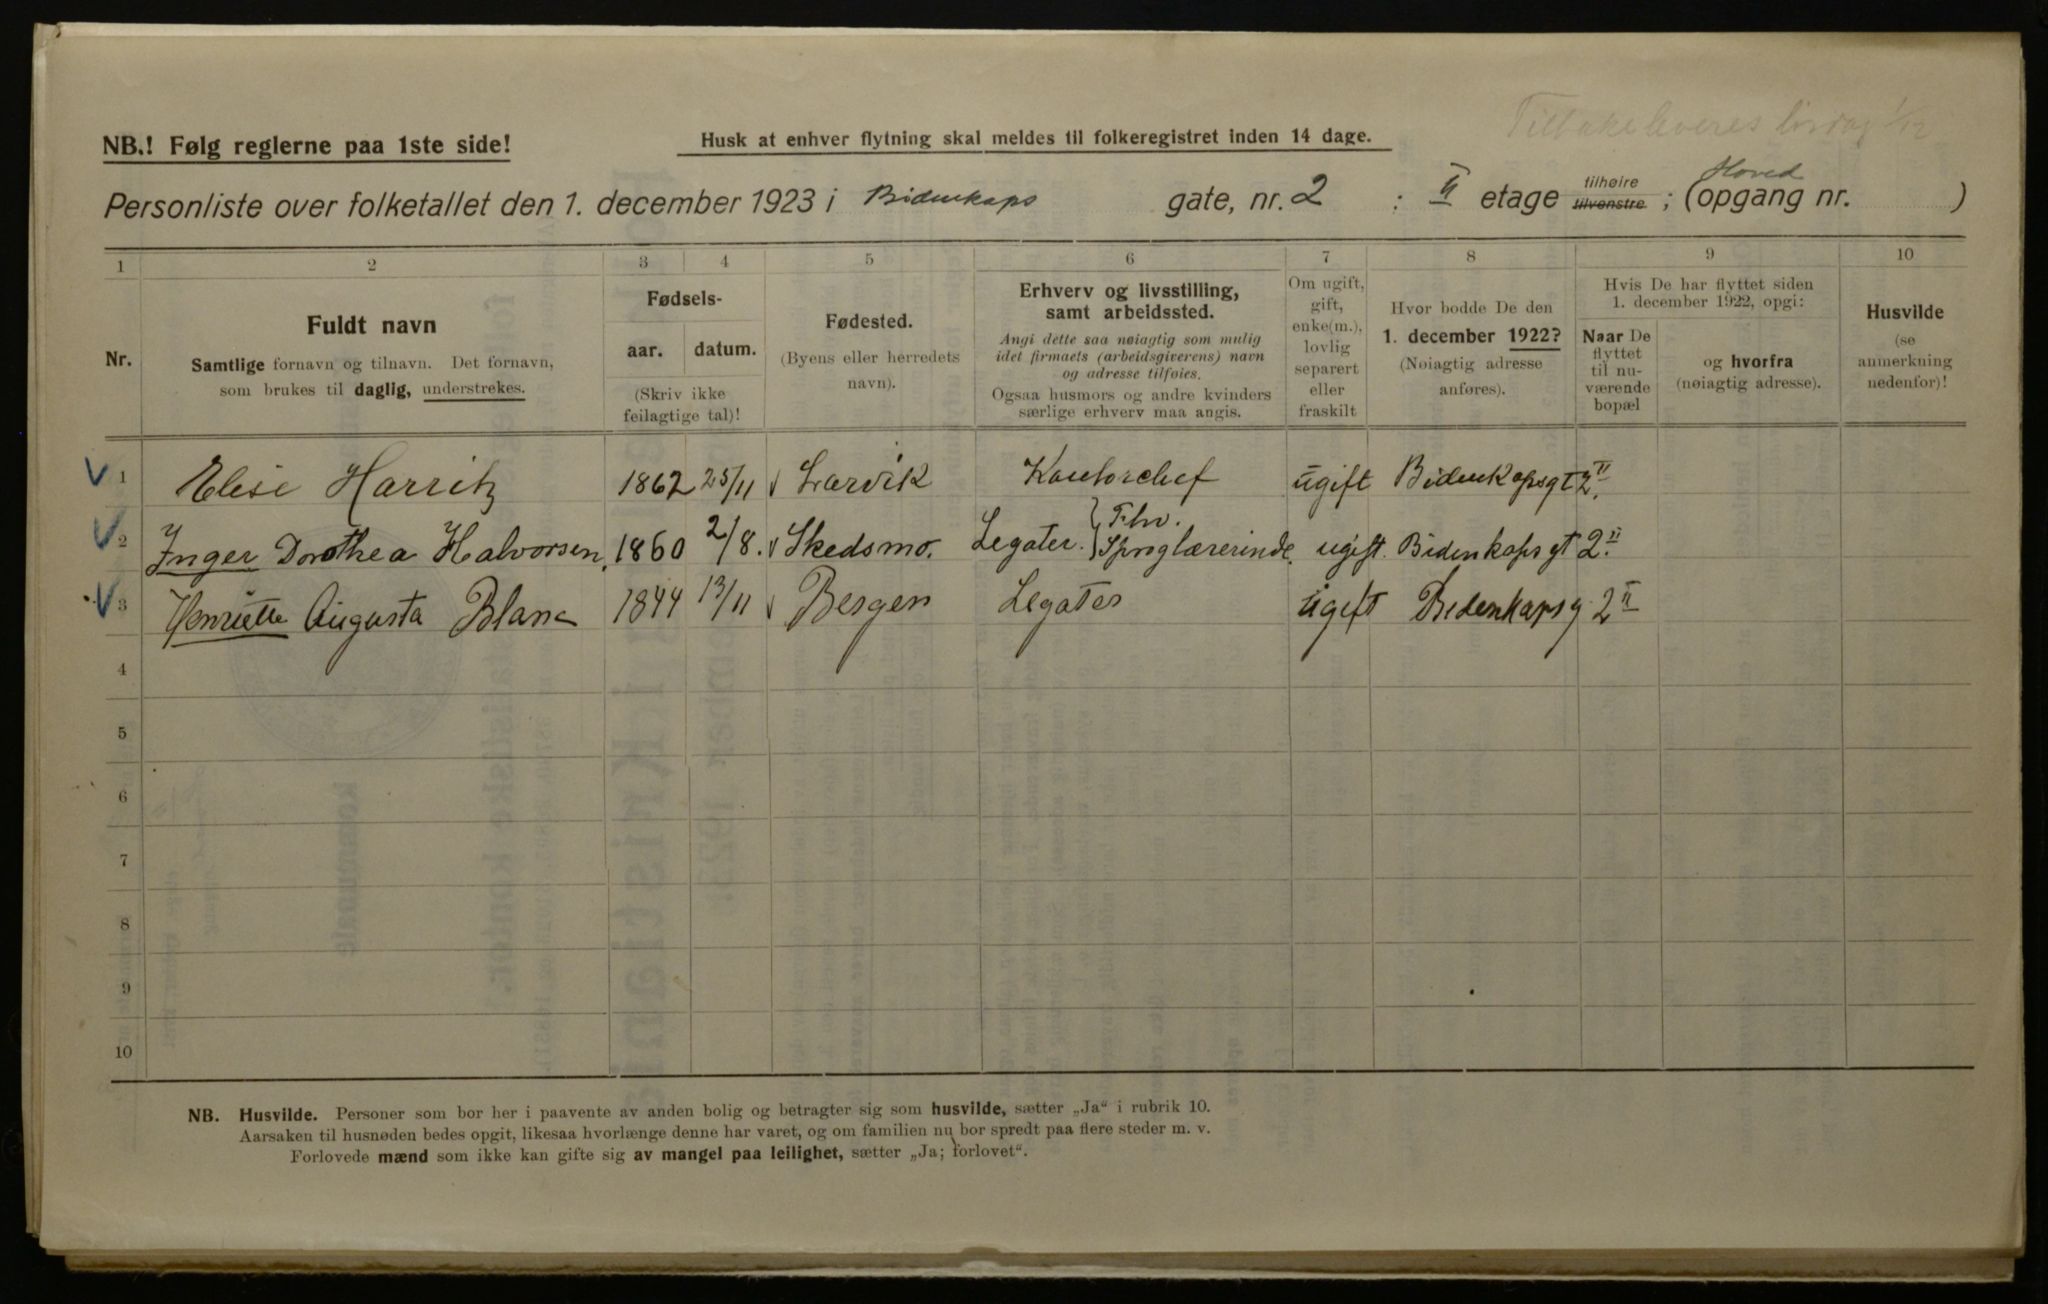 Tilbakeleveres lördag 1/12
NB.! Følg reglerne paa 1ste side!
Husk at enhver flytning skal meldes til folkeregistret inden 14 dage.
Personliste over folketallet den 1. december 1923 i Bidenkaps gate, nr. 2 : II etage tilhøire tilvenstre ; (opgang nr. Hoved )
1 2 3 4 5 6 7 8 9 10
Nr.
Fuldt navn
Samtlige fornavn og tilnavn. Det fornavn,
som brukes til daglig, understrekes.
Fødsels-
aar. datum.
(Skriv ikke
feilagtige tal)!
Fødested.
(Byens eller herredets
navn).
Erhverv og livsstilling,
samt arbeidssted.
Angi dette saa nøiagtig som mulig
idet firmaets (arbeidsgiverens) navn
og adresse tilføies.
Ogsaa husmors og andre kvinders
særlige erhverv maa angis.
Om ugift,
gift,
enke(m.),
lovlig
separert
eller
fraskilt
Hvor bodde De den
1. december 1922?
(Nøiagtig adresse
anføres).
Hvis De har flyttet siden
1. december 1922, opgi:
Naar De
flyttet
til nu-
værende
bopæl
og hvorfra
(nøiagtig adresse).
Husvilde
(se
anmerkning
nedenfor)!
1 Elise Harritz 1862 25/11 Larvik Kontorchef ugift Bidenkapsgt 2 II
2 Inger Dorothea Halvorsen, 1860 2/8. Skedsmo. Legater. } Fhv. Sproglærerinde. ugift. Bidenkaps gt 2 II
3 Henriette Augusta Blanc 1844 13/11 Bergen Legater ugift Bidenkapsg 2 II
4
5
6
7
8
9
10
NB. Husvilde. Personer som bor her i paavente av anden bolig og betragter sig som husvilde, sætter „Ja“ i rubrik 10.
Aarsaken til husnøden bedes opgit, likesaa hvorlænge denne har varet, og om familien nu bor spredt paa flere steder m. v.
Forlovede mænd som ikke kan gifte sig av mangel paa leilighet, sætter „Ja; forlovet“.